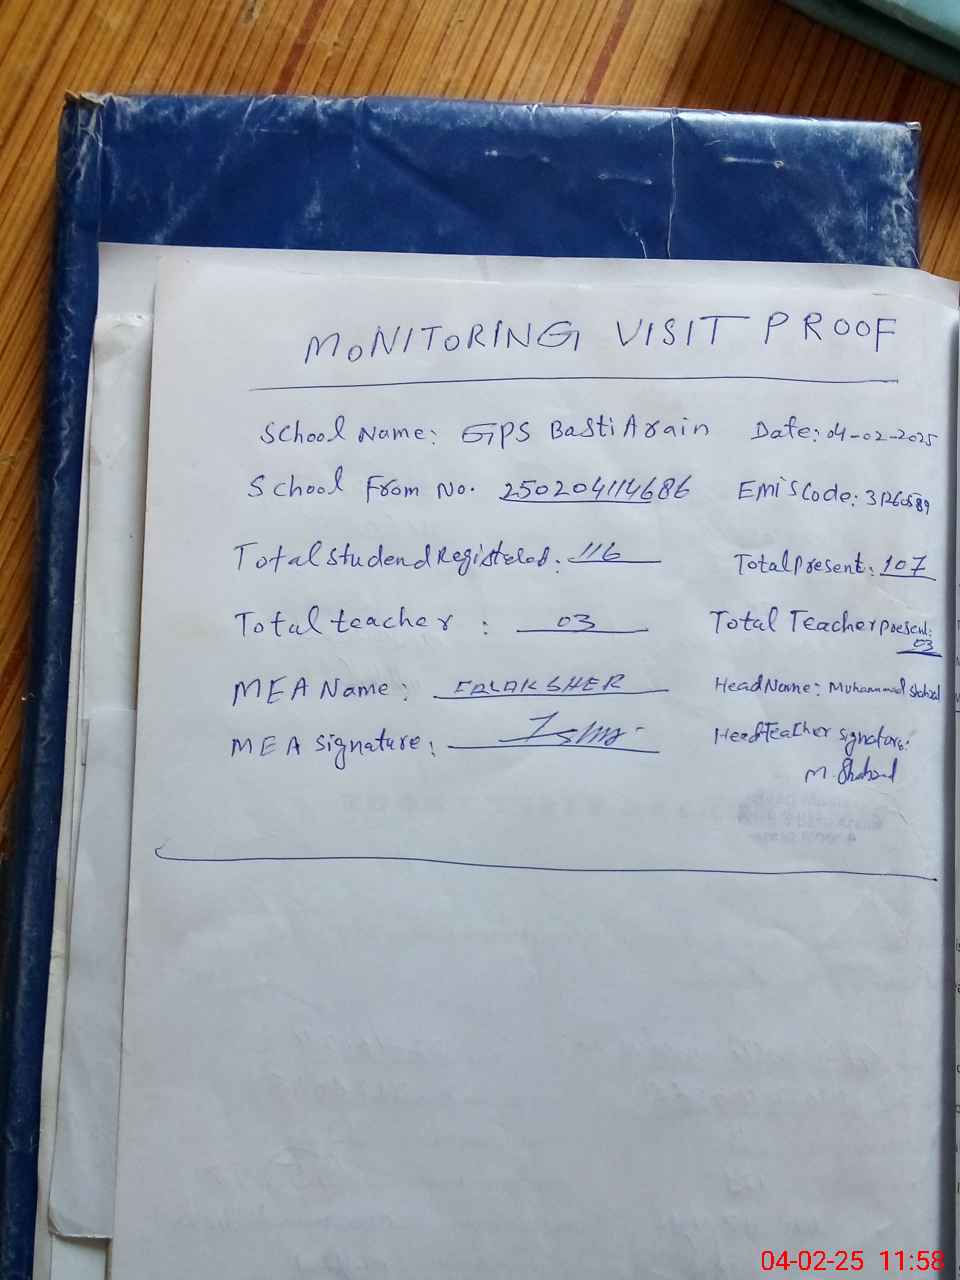 MONITORING VISIT PROOF
School Name: GPS Basti Arain Date: 04-02-2025
School From No. 250204114686 EmisCode: 31260589
Total studend Registered: 116 Total present: 107
Total teacher : 03 Total Teacher present: 03
MEA Name: FALAK SHER Head Name: Muhammad Shahzad
MEA signature: Head Teacher signature:
M. Shahzad
04-02-25 11:58